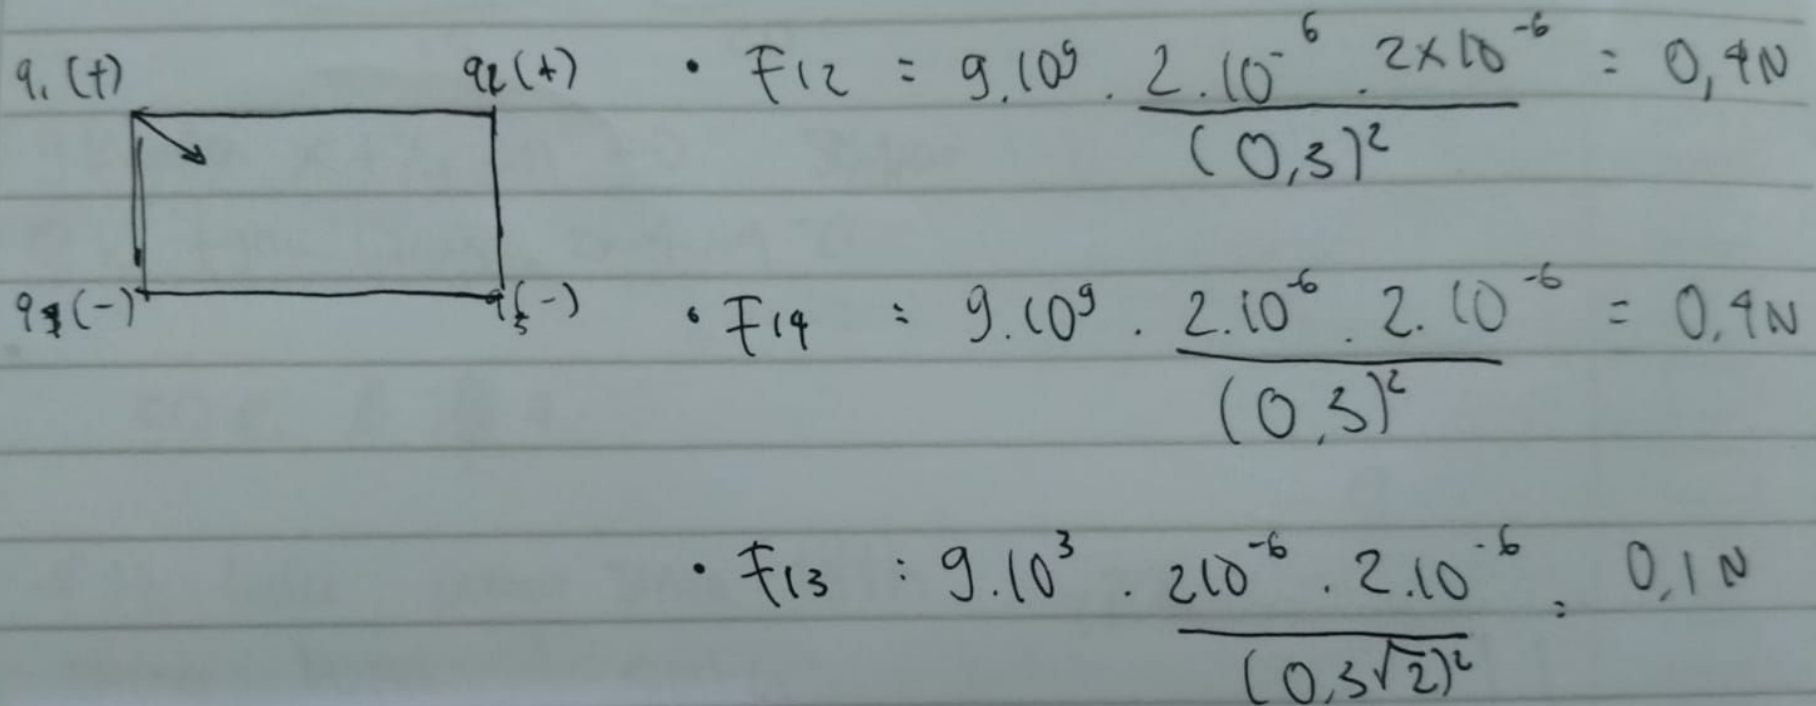 q1 (+) q2 (+)
q4 (-) q3 (-)
• F12 = 9.10⁹ . 2.10⁻⁶ . 2×10⁻⁶ / (0,3)² = 0,4N
• F14 = 9.10⁹ . 2.10⁻⁶ . 2.10⁻⁶ / (0,3)² = 0,4N
• F13 : 9.10³ . 210⁻⁶ . 2.10⁻⁶ / (0,3√2)² = 0,1N